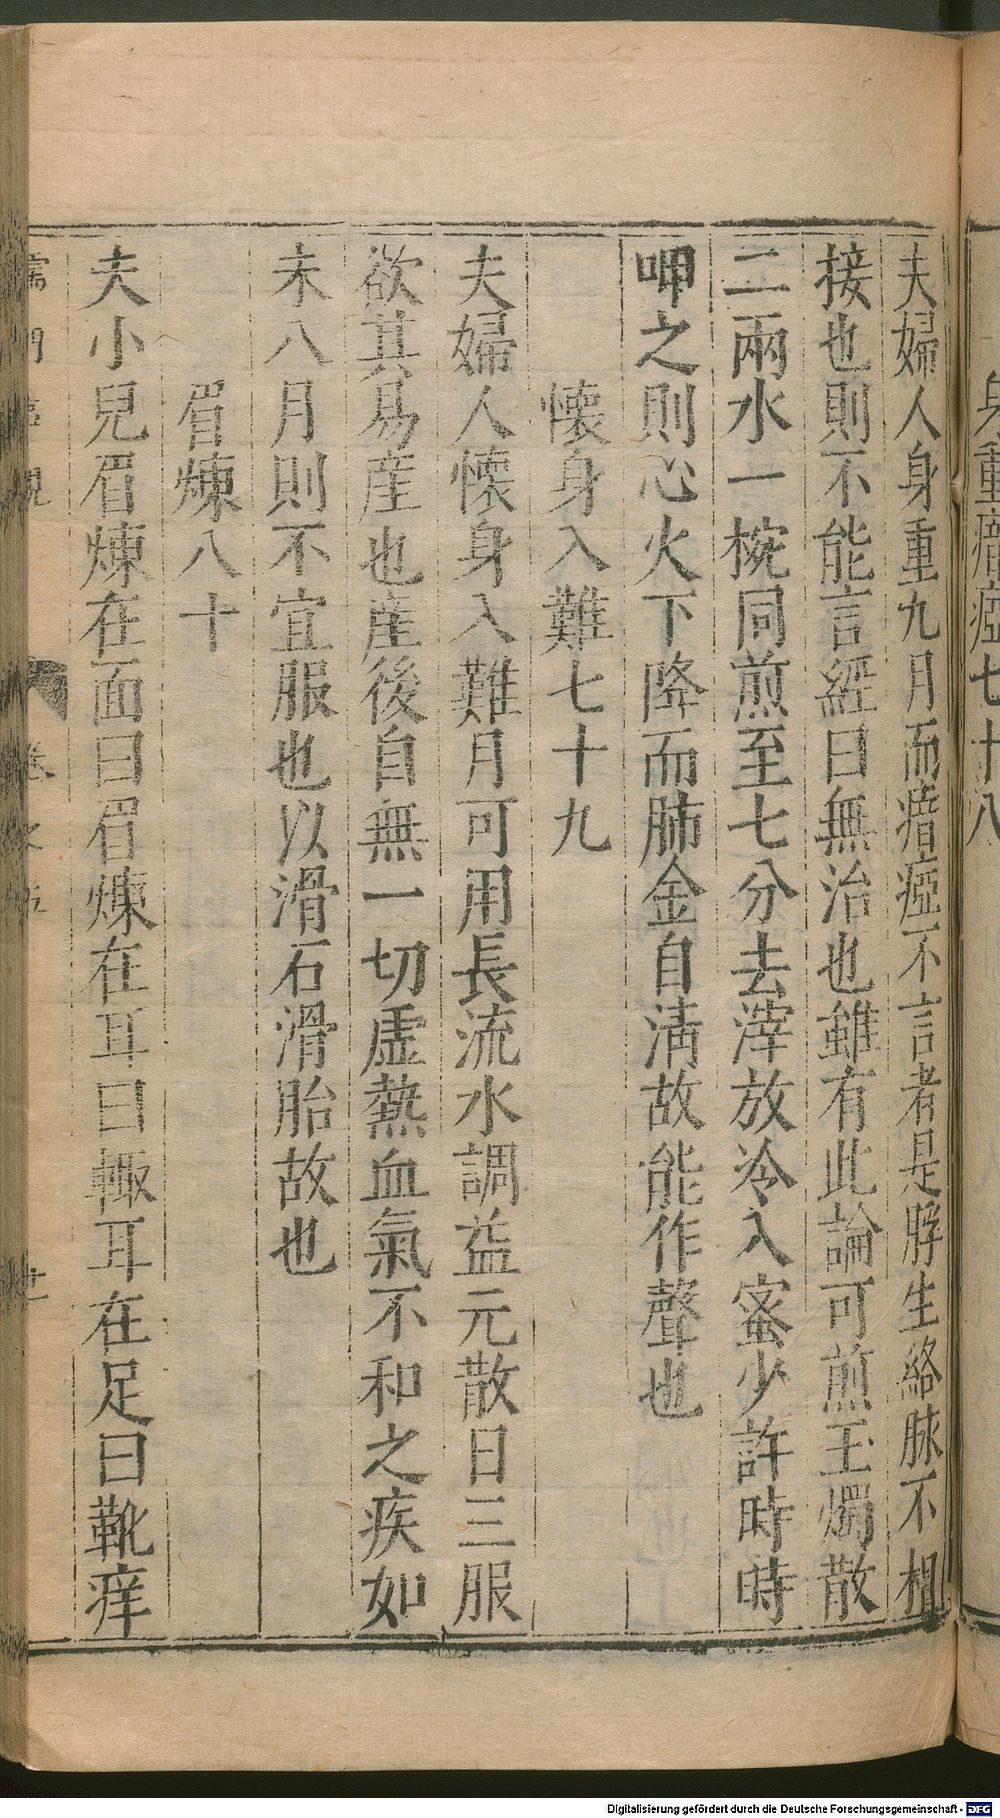 身重瘖瘂七十八
夫婦人身重九月而瘖瘂不言者是脬生絡脉不相
接也則不能言經曰無治也雖有此論可煎玉燭散
二兩水一椀同煎至七分去滓放冷入蜜少許時時
呷之則心火下降而肺金自淸故能作聲也
懷身入難七十九
夫婦人懷身入難月可用長流水調益元散日三服
欲其易產也產後自無一切虛熱血氣不和之疾如
未八月則不宜服也以滑石滑胎故也
眉煉八十
夫小兒眉煉在面曰眉煉在耳曰輙耳在足曰靴痒
儒門事親 卷之五 十一
Digitalisierung gefördert durch die Deutsche Forschungsgemeinschaft - DFG